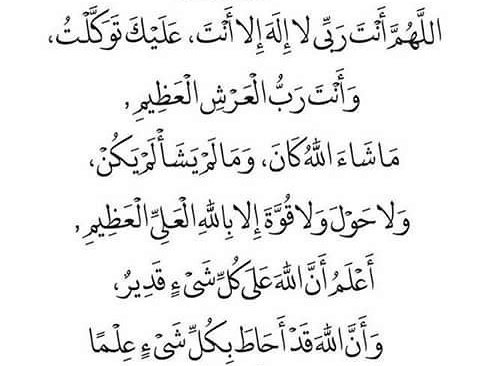 اللَّهُمَّ أَنْتَ رَبِّى لا إِلَهَ إِلا أَنْتَ، عَلَيْكَ تَوَكَّلْتُ،
وَأَنْتَ رَبُّ الْعَرْشِ الْعَظِيمِ,
مَا شَاءَ اللَّهُ كَانَ، وَمَا لَمْ يَشَأْ لَمْ يَكُنْ،
وَلا حَوْلَ وَلا قُوَّةَ إِلا بِاللَّهِ الْعَلِىِّ الْعَظِيمِ,
أَعْلَمُ أَنَّ اللَّهَ عَلَى كُلِّ شَىْءٍ قَدِيرٌ،
وَأَنَّ اللَّهَ قَدْ أَحَاطَ بِكُلِّ شَىْءٍ عِلْمًا